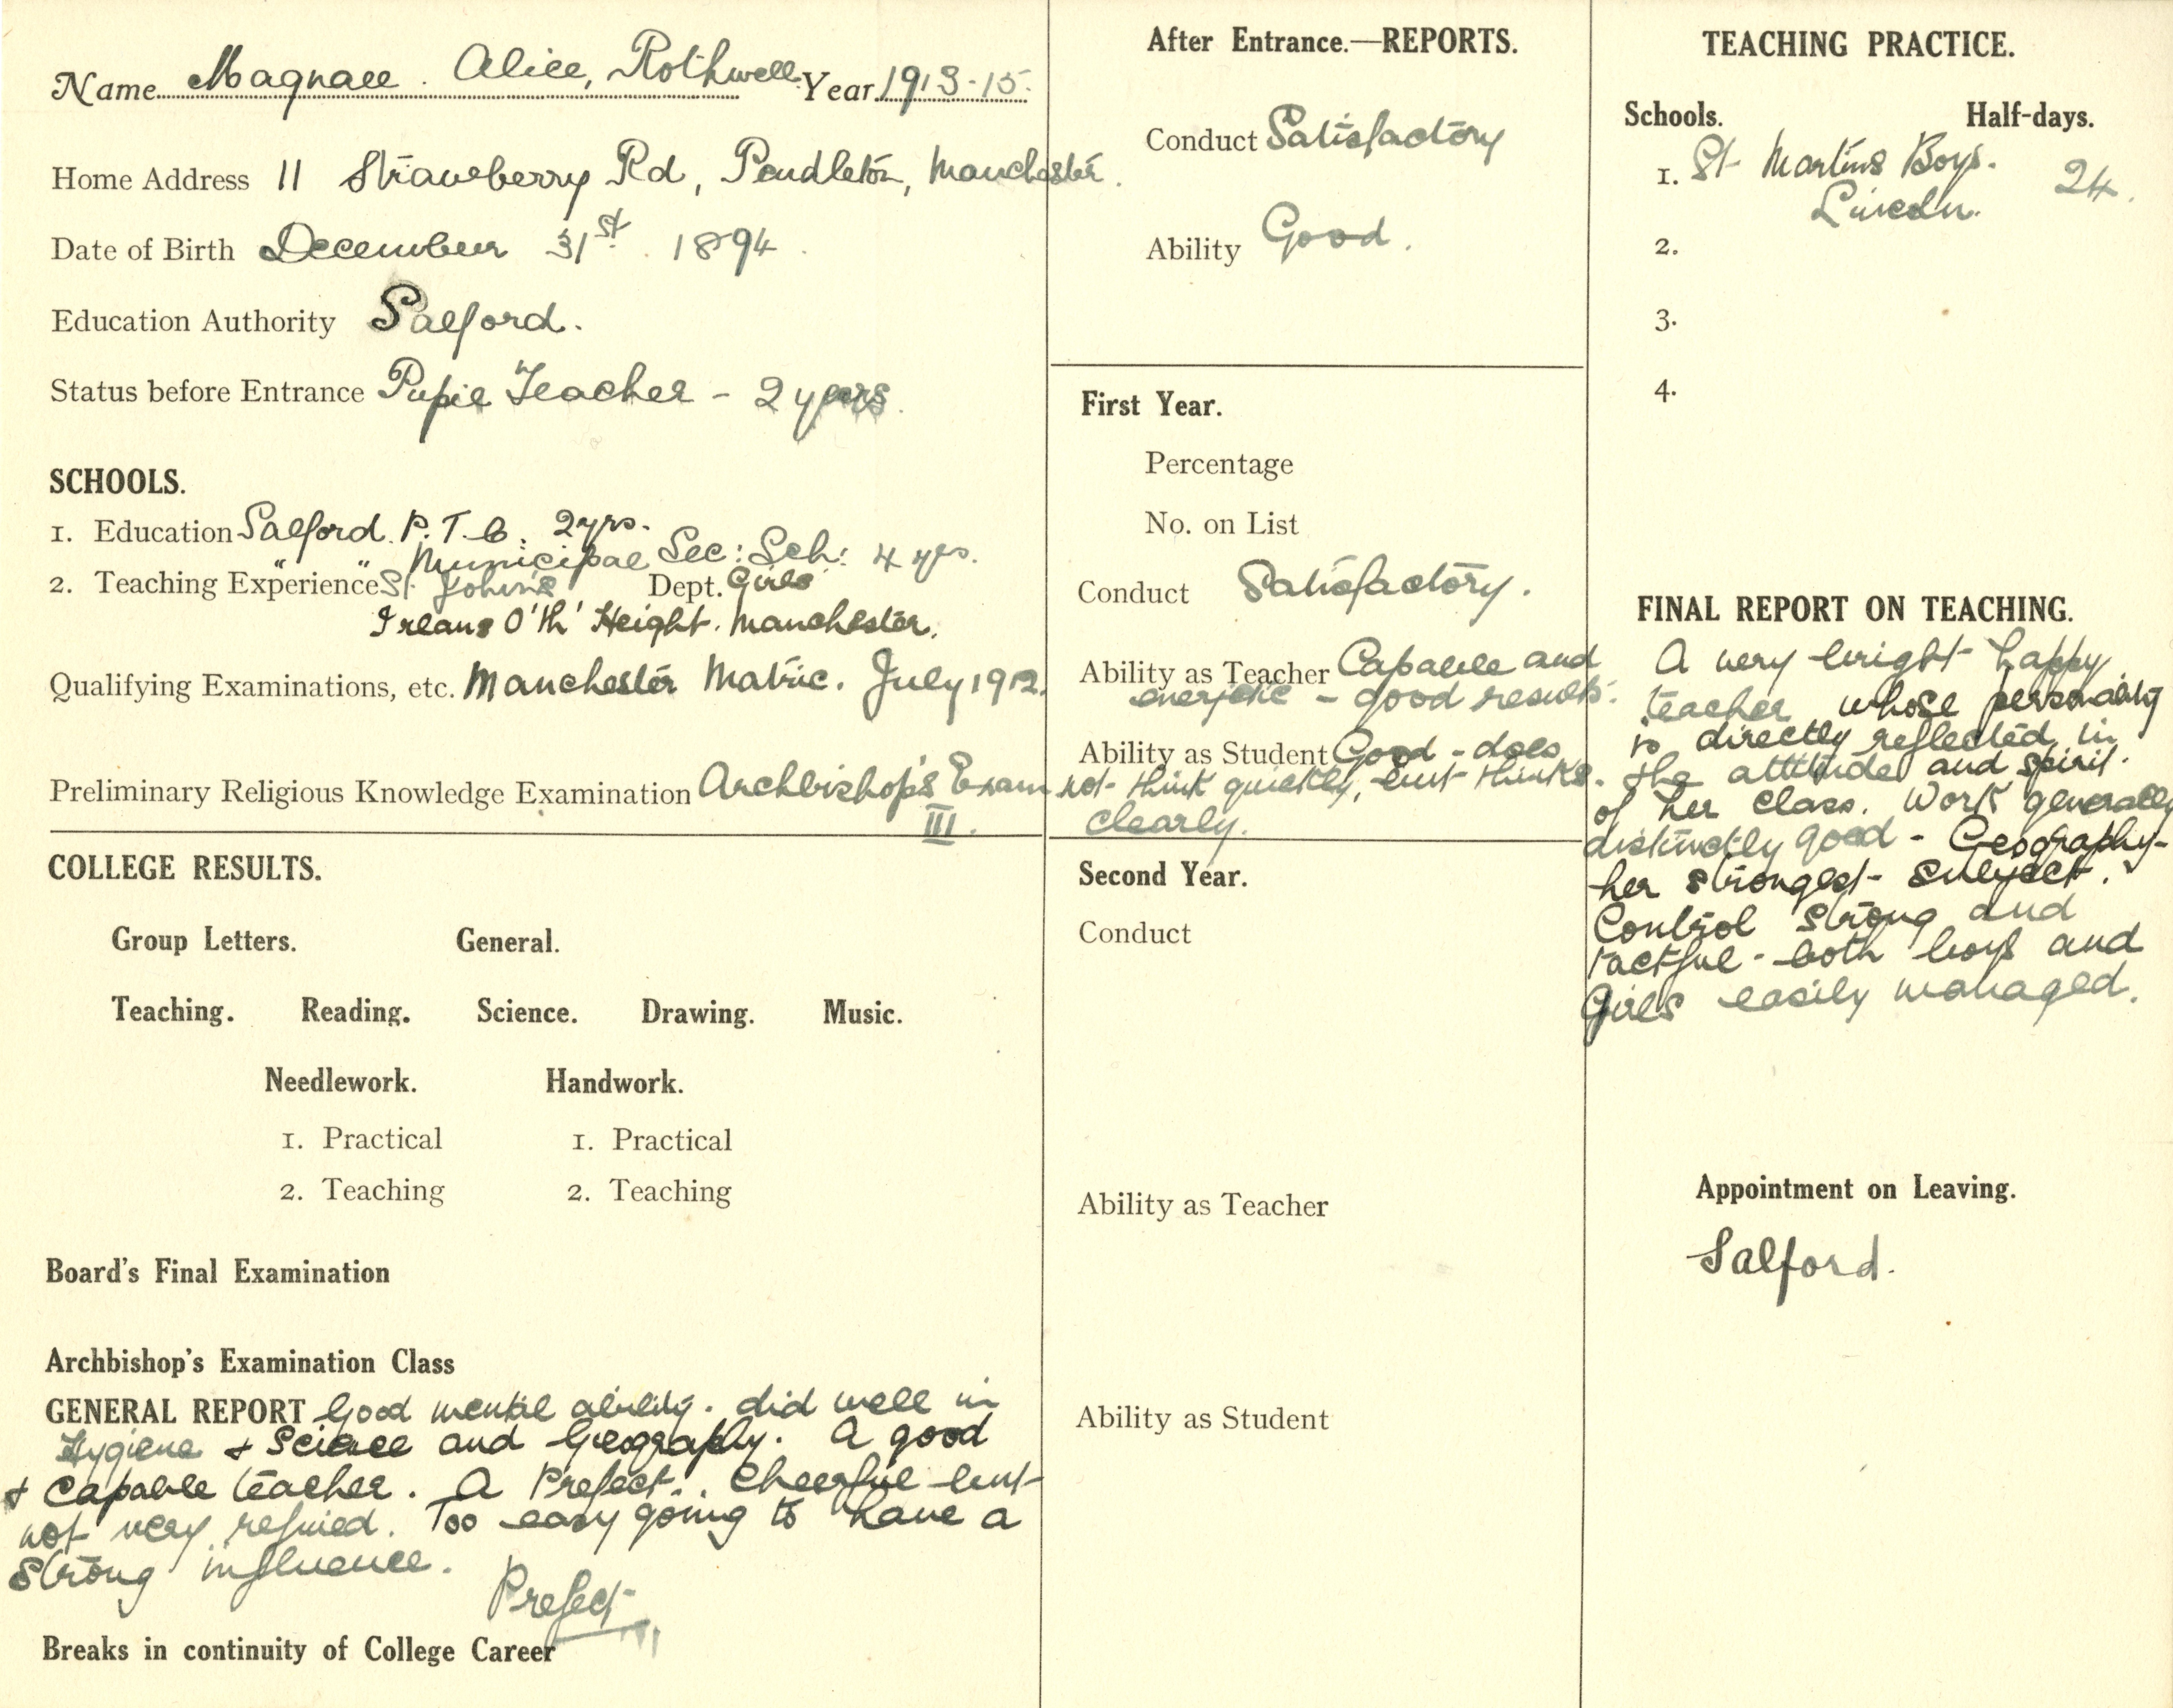 Name Magnall. Alice, Rothwell Year 1913-15.
Home Address 11 Strawberry Rd, Pendleton, Manchester.
Date of Birth December 31st. 1894.
Education Authority Salford.
Status before Entrance Pupil Teacher - 2 years.
SCHOOLS.
1. Education Salford P.T.C. 2 yrs.
" " Municipal Sec: Sch: 4 yrs.
2. Teaching Experience St John's Dept. Girls
Irlams O'th' Height. Manchester.
Qualifying Examinations, etc. Manchester Matric. July 1912.
Preliminary Religious Knowledge Examination Archbishop's Exam
III.
COLLEGE RESULTS.
Group Letters. General.
Teaching. Reading. Science. Drawing. Music.
Needlework. Handwork.
1. Practical 1. Practical
2. Teaching 2. Teaching
Board's Final Examination
Archbishop's Examination Class
GENERAL REPORT Good mental ability. did well in
Hygiene + Science and Geography. A good
+ capable teacher. A Prefect. Cheerful but
not very refined. Too easy going to have a
strong influence.
Prefect
Breaks in continuity of College Career
After Entrance.—REPORTS.
Conduct Satisfactory
Ability Good.
First Year.
Percentage
No. on List
Conduct Satisfactory.
Ability as Teacher Capable and
energetic - good results.
Ability as Student Good - does
not think quickly, but thinks
clearly.
Second Year.
Conduct
Ability as Teacher
Ability as Student
TEACHING PRACTICE.
Schools. Half-days.
1. St Martins Boys. 24.
Lincoln.
2.
3.
4.
FINAL REPORT ON TEACHING.
A very bright happy
teacher whose personality
is directly reflected in
the attitude and spirit
of her class. Work generally
distinctly good - Geography-
her strongest subject.
Control strong and
tactful - both boys and
Girls easily managed.
Appointment on Leaving.
Salford.